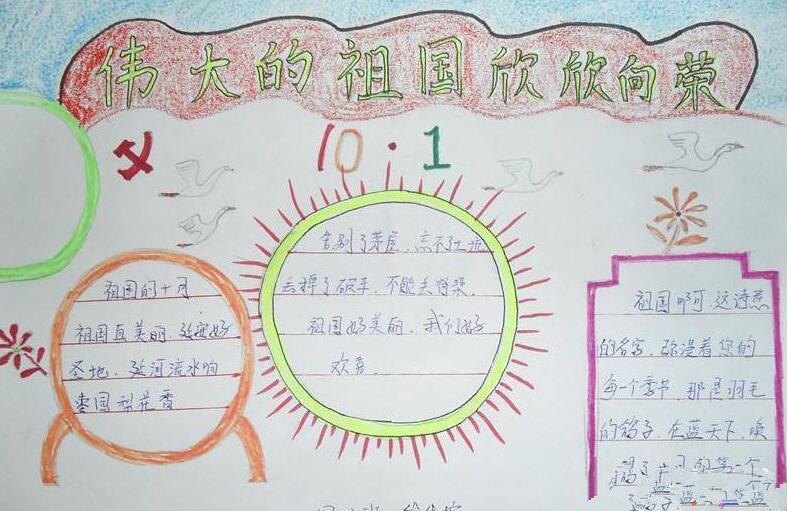 伟大的祖国欣欣向荣
10·1
祖国的十月
祖国真美丽,延安好
圣地,延河流水响
枣园梨花香
告别了茅屋,忘不了土地
丢掉了破车,不能丢脊梁
祖国好美丽,我们好
欢喜
祖国啊,这诗意
的名字,弥漫着您的
每一个季节,那是羽毛
的鸽子,在蓝天下,唤